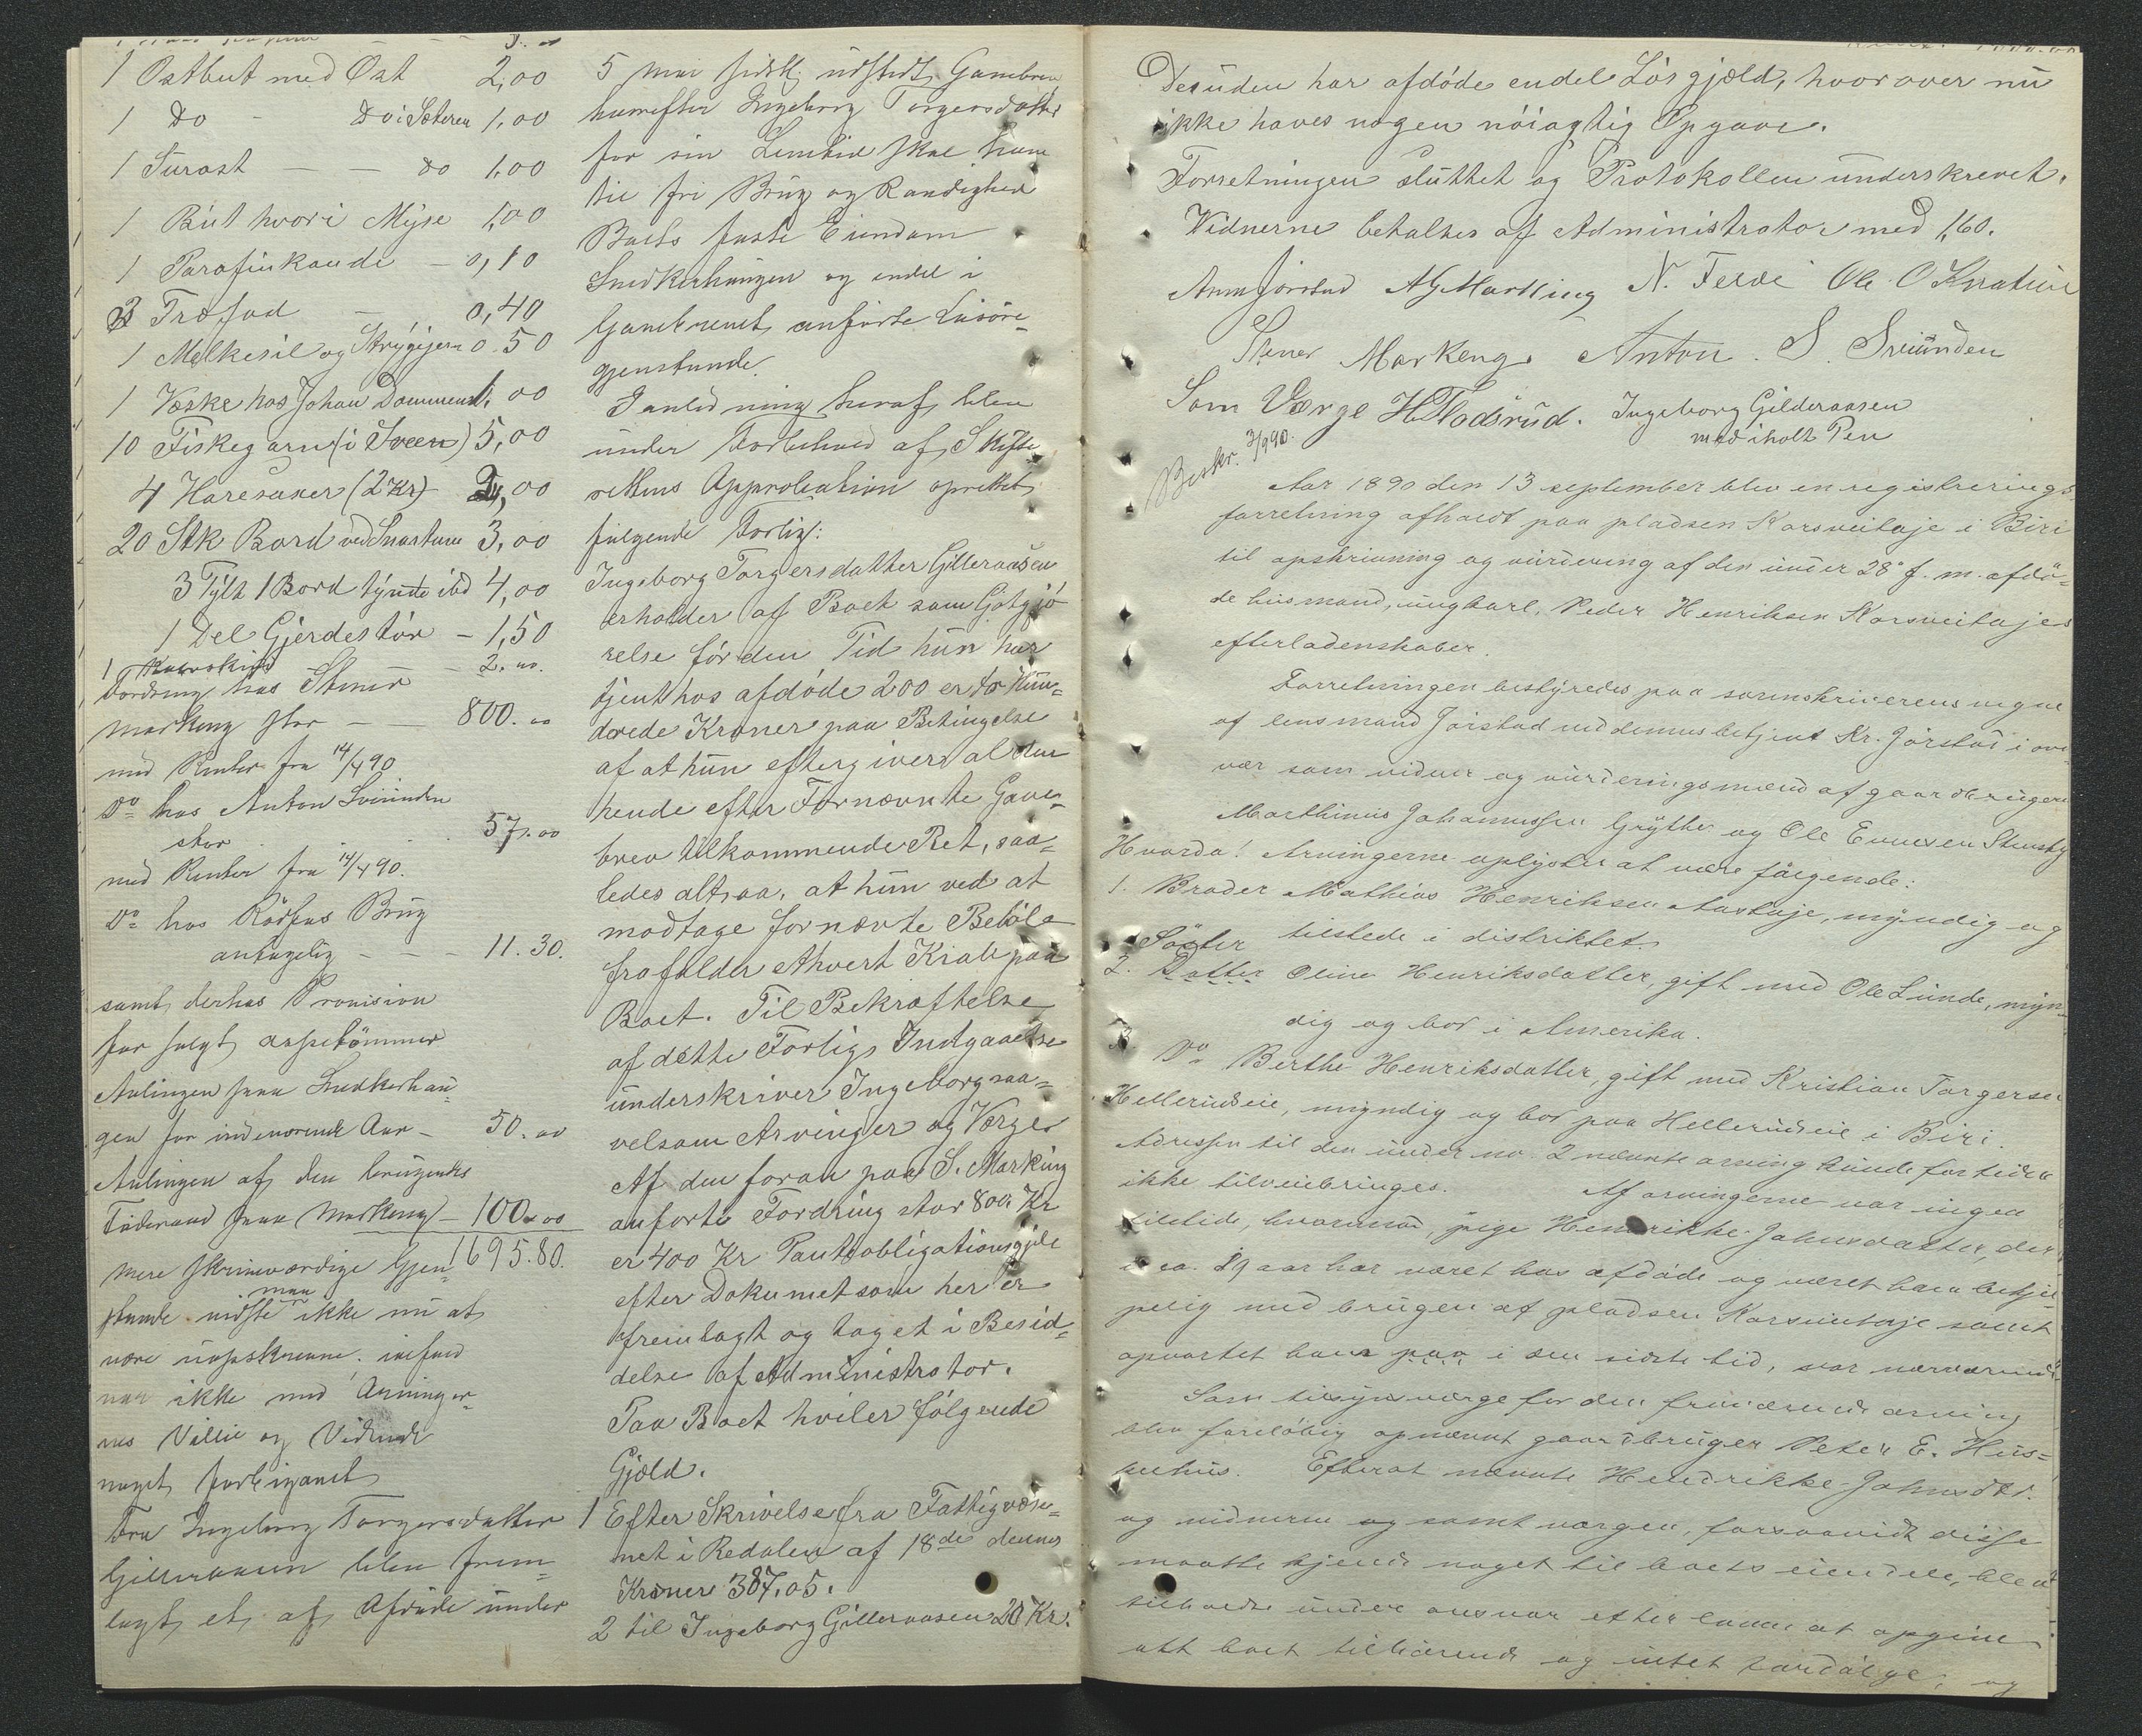 1 Ostbut med Ost 2,00
1 Do - Do i Sæteren 1,00
1 Surost - - do 1,00
1 But hvori Myse 1,00
1 Parafinkande - 0,10
3 Træfad - 0,40
1 Melkesil og Strygejern 0.50
1 Væske hos Johan 1,00
10 Fiskegarn (i Sveen) 5,00
4 Haresaxer (2 Kr) 2,00
20 Stk Bord ved 3,00
3 Tylt 1 Bord tynde ibd 4,00
1 Del Gjerdestör - 1,50
1 - 2.00
Fordring hos Stener
Markeng stor - - 800.00
med Renter fra 14/4 90
Do hos Anton Sviunden
stor 57.00
med Renter fra 14/4 90.
Do hos Rödfus Brug
antagelig - - - 11.30.
samt derhos Provision
for solgt aspetömmer
Avlingen paa Snedkerhau-
gen for indeværende Aar - 50.00
Avlingen af den brugendes
Föderaad paa Markeng - 100.00
1695.80.
mere skriveværdige Gjen-
stande vidste man ikke nu at
være uopskrevne.
var ikke med Arvinger-
nes Villie og Vidende
noget fortiganet
Fra Ingeborg Torgersdatter
Gilleraasen blev frem-
lagt et af Afdöde under
5 Mai sidstl. udstedt Gavebrev
hvorefter Ingeborg Torgersdatter
for sin Levetid skal have
til fri Brug og Raadighed
Boets faste Eiendom
Snedkerhaugen og endel i
Gavebrevet anförte Lösöre-
gjenstande.
I anledning heraf blev
under Forbehold af Skifte-
rettens Approbation oprettet
fölgende Forlig:
Ingeborg Torgersdatter Gilleraasen
erholder af Boet som Gotgjö-
relse för den Tid hun har
tjent hos afdöde 200 er to Hun-
drede Kroner paa Betingelse
af at hun eftergiver al den
hende efter Fornævnte Gave-
brev tilkommende Ret, saa-
ledes altsaa, at hun ved at
modtage fornævte Belöb
frafalder ethvert Krav paa
Boet. Til Bekræftelse
af dette Forligs Indgaaelse
underskriver Ingeborg saa-
velsom Arvinger og Værger
Af den foran paa S. Markeng
anförte Fordring stor 800 Kr
er 400 Kr Pantobligationsgjeld
efter Dokumet som her er
fremlagt og taget i Besid-
delse af Administrator.
Paa Boet hviler fölgende
Gjæld.
1 Efter Skrivelse fra Fattigvæse-
net i Redalen af 18de dennes
Kroner 387.05.
2 til Ingeborg Gilleraasen 20 Kr.
Desuden har afdöde endel Lösgjæld, hvorover nu
ikke haves nogen nöiagtig Opgave.
Forretningen sluttet og Protokollen underskrevet.
Vidnerne betales af Administrator med 1,60.
Amm Jörstad N. Ferde Ole O Kra
Stener Markeng. Anton. S. Sviunden
Som Værge H. Flodsrud. Ingeborg Gilderaasen
med iholt Pen
Beskr. 3/9 90.
Aar 1890 den 13 september blev en registrerings-
forretning afholdt paa pladsen Korsveitaje i Biri
til opskrivning og vurdering af den under 28 f. m. afdö-
de husmand, ungkarl, Peder Henriksen Korsveitajes
efterladenskaber.
Forretningen bestyredes paa sorenskriverens vegne
af lensmand Jörstad ved dennes betjent Kr. Jörstad i over-
vær som vidner og vurderingsmænd af gaardbrugere
Marthinus Johannessen Grythe og Ole Evensen Stensby
Hvorda! Arvingerne oplystes at være fölgende:
1. Broder Mathias Henriksen Aastaje, myndig og
tilstede i distriktet.
Söster
2. Datter Oline Henriksdatter, gift med Ole Lunde, myn-
dig og bor i Amerika.
3. Do Berthe Henriksdatter, gift med Kristian Torgersen
Hellerudseie, myndig og bor paa Hellerudseie i Biri.
Adressen til den under no. 2 nævnte arving kunde for tiden
ikke tilveiebringes. Af arvingerne var ingen
tilstede, hvorimod pige Hendrikke Johnsdatter, der
i ca. 19 aar har været hos afdöde og været ham behjæl-
pelig med brugen af pladsen Korsveitaje samt
opvartet ham paa i den sidste tid, var nærværende.
Som tilsynsværge for den fraværende arving
blev foreløbig opnævnt gaardbruger Peter E. Hus-
behus. Efterat nævnte Hendrikke Johnsdtr.
og vidnerne og samt værgen, forsaavidt disse
maatte kjende noget til boets eiendele, blev
tilholdt under ansvar efter loven at opgive
alt boet tilhörende og intet fordölge, og